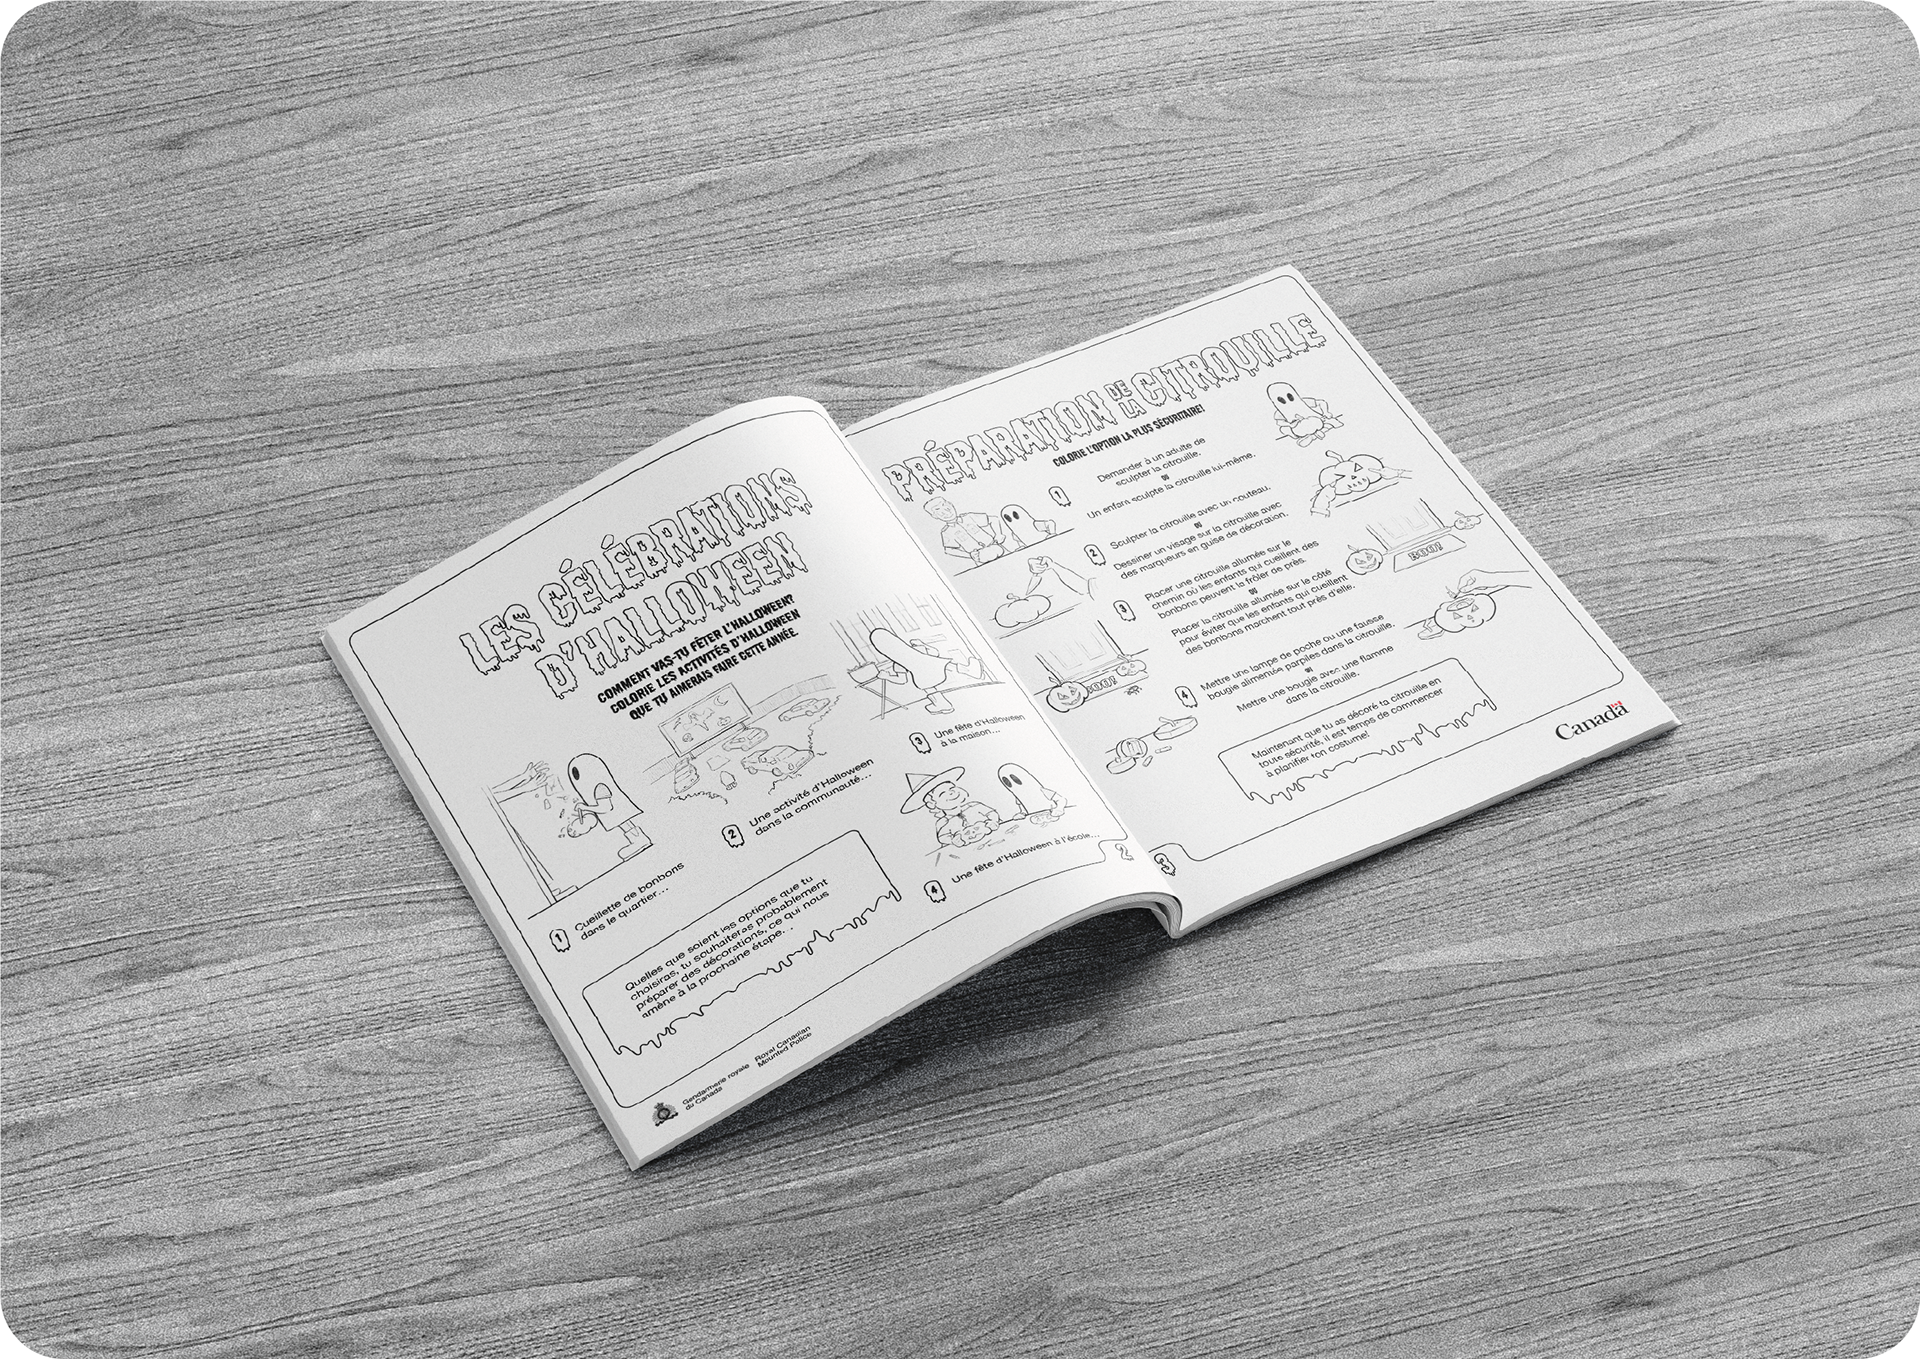 LES CÉLÉBRATIONS
D'HALLOWEEN
COMMENT VAS-TU FÊTER L'HALLOWEEN?
COLORIE LES ACTIVITÉS D'HALLOWEEN
QUE TU AIMERAIS FAIRE CETTE ANNÉE.
1
Cueillette de bonbons
dans le quartier...
2
Une activité d'Halloween
dans la communauté...
3
Une fête d'Halloween
à la maison...
4
Une fête d'Halloween à l'école...
Quelles que soient les options que tu
choisiras, tu souhaiteras probablement
préparer des décorations, ce qui nous
amène à la prochaine étape. . .
Gendarmerie royale
du Canada
Royal Canadian
Mounted Police
2
PRÉPARATION DE LA CITROUILLE
COLORIE L'OPTION LA PLUS SÉCURITAIRE!
1
Demander à un adulte de
sculpter la citrouille.
ou
Un enfant sculpte la citrouille lui-même.
2
Sculpter la citrouille avec un couteau.
ou
Dessiner un visage sur la citrouille avec
des marqueurs en guise de décoration.
3
Placer une citrouille allumée sur le
chemin où les enfants qui cueillent des
bonbons peuvent la frôler de près.
ou
Placer la citrouille allumée sur le côté
pour éviter que les enfants qui cueillent
des bonbons marchent tout près d'elle.
4
Mettre une lampe de poche ou une fausse
bougie alimentée par piles dans la citrouille.
ou
Mettre une bougie avec une flamme
dans la citrouille.
BOO!
BOO!
Maintenant que tu as décoré ta citrouille en
toute sécurité, il est temps de commencer
à planifier ton costume!
Canada
3